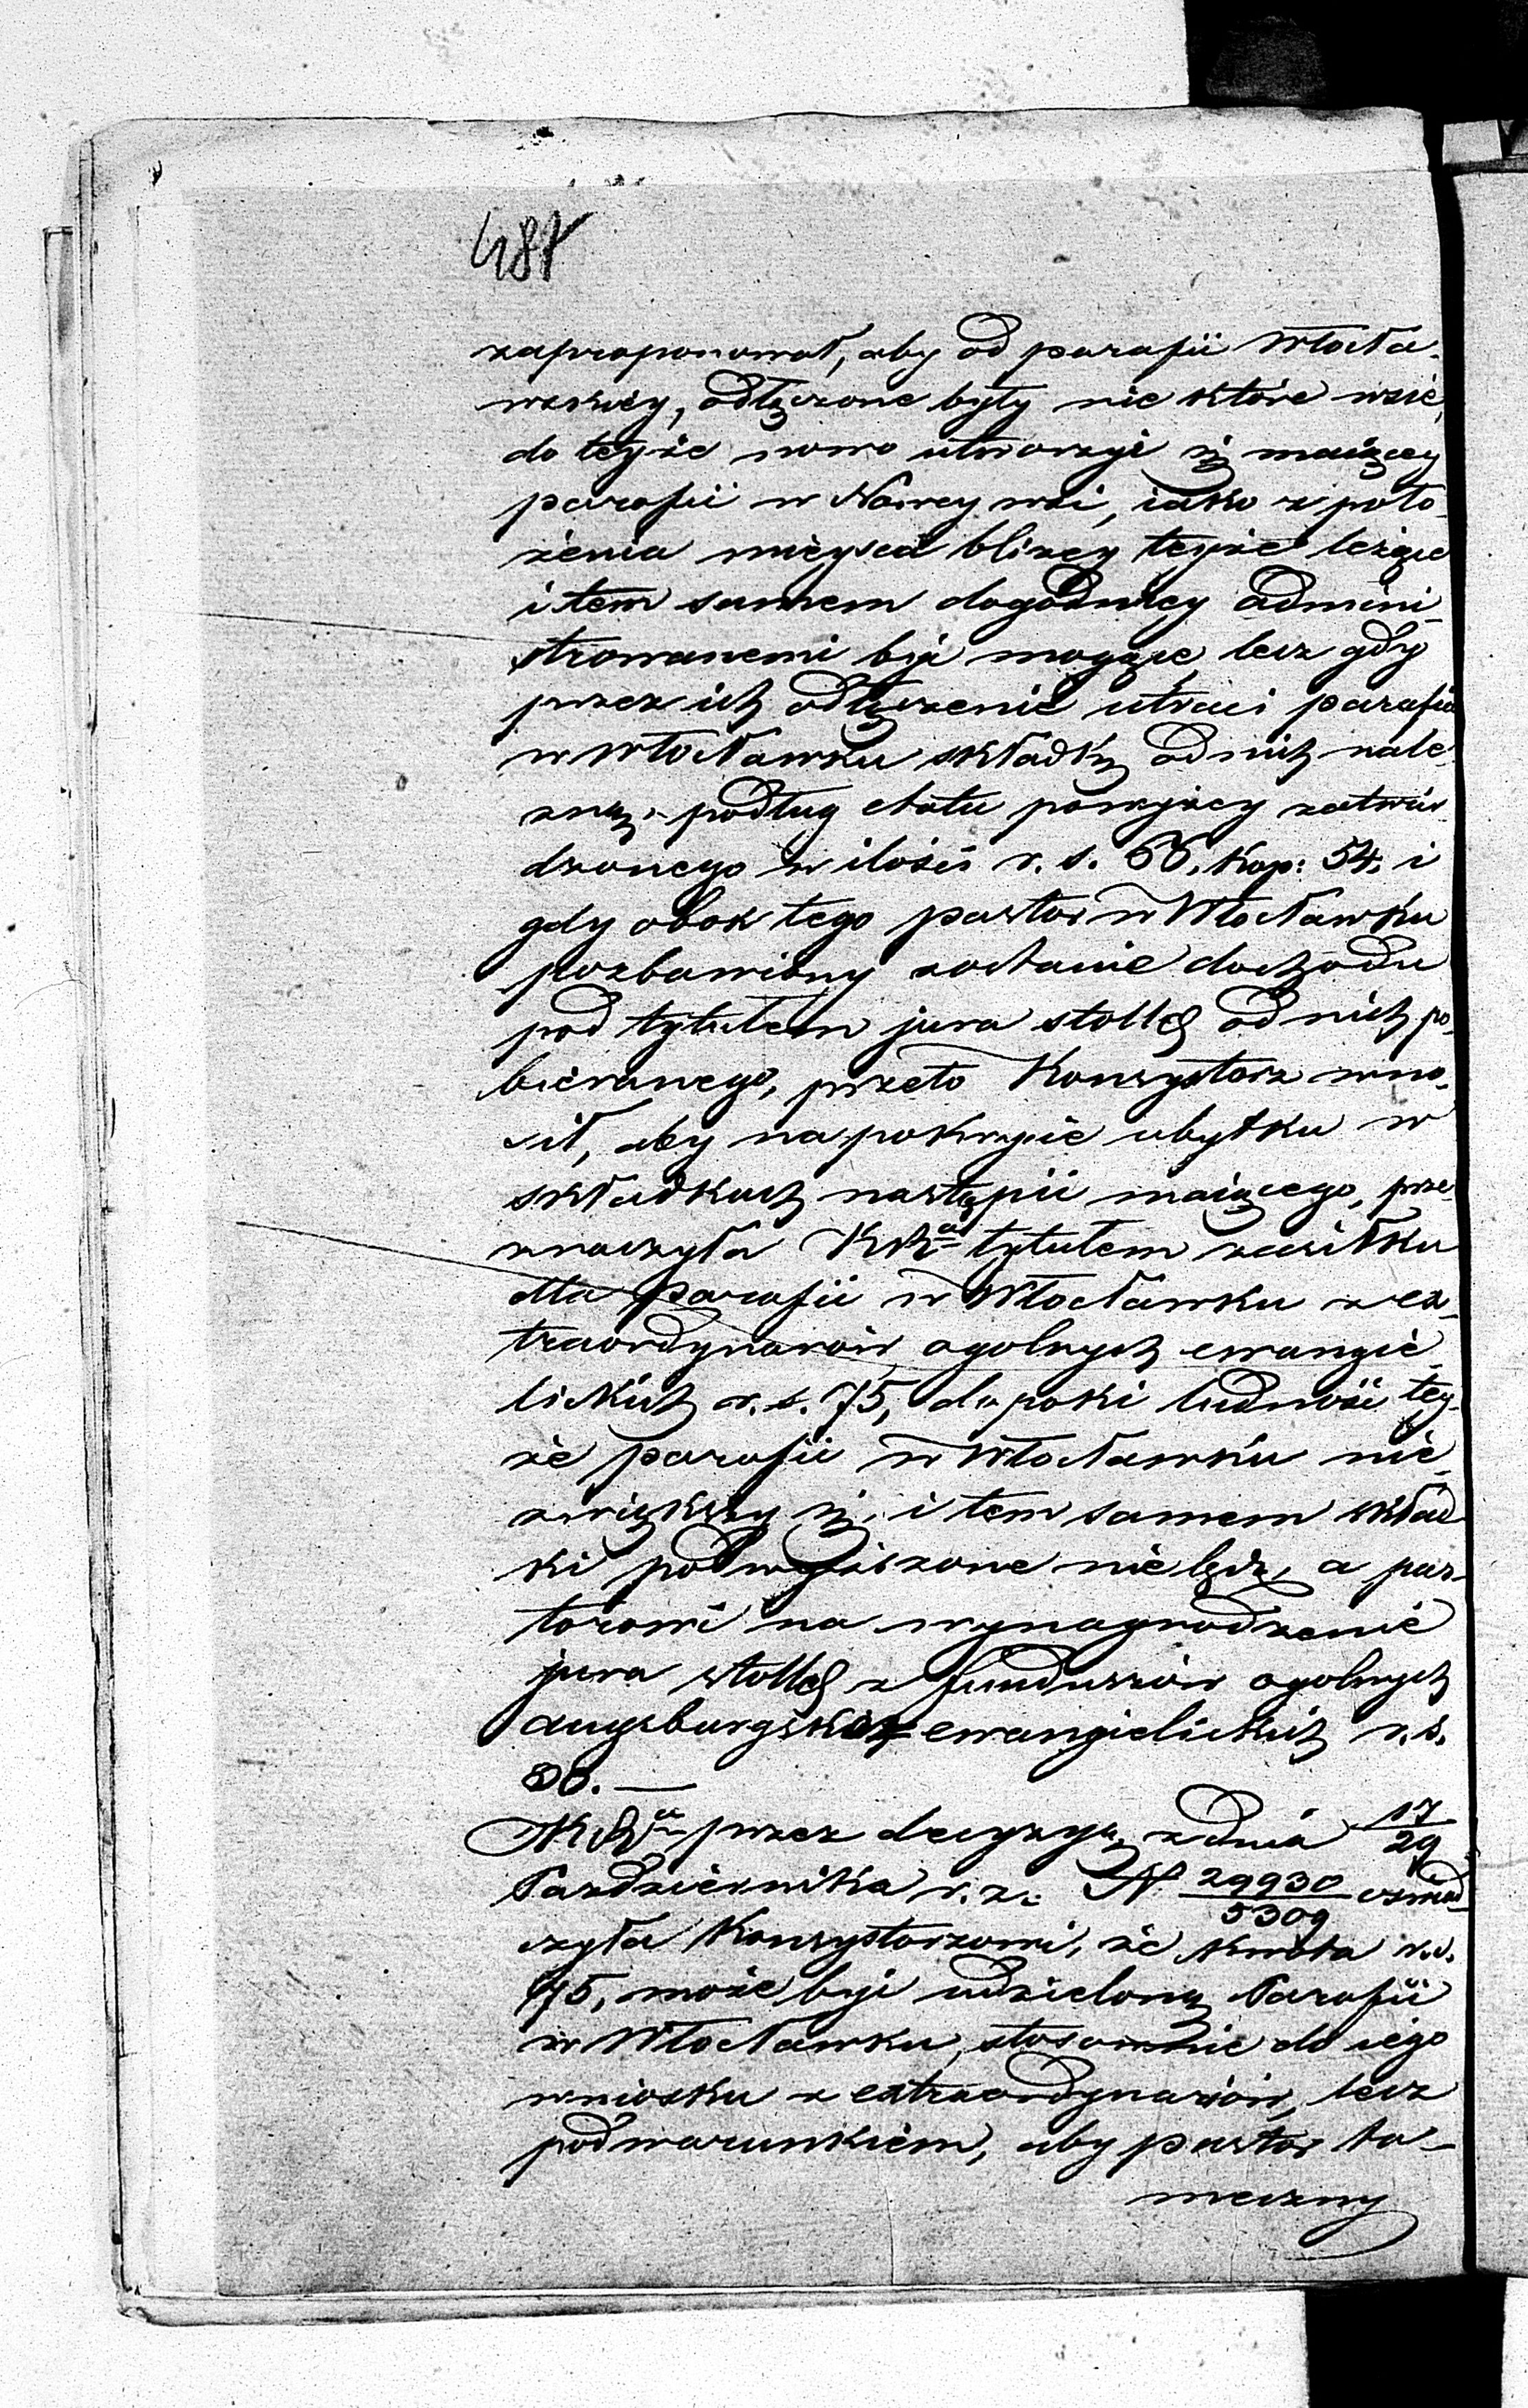 487
zaproponował, aby od parafii Włocła-
wskiéy, odłączone były nie które wsie,
do teyże nowo utworzyć się maiącey
parafii w Nowey wsi, iako z poło-
żenia mieysca bliżey teyże leżące
i tem samem dogodniey admini-
strowanemi być mogące, lecz gdy
przez ich odłączenie utraci parafia
w Włocławku składkę od nich nale-
żną, podług etatu powyżey zatwier-
dzonego w ilości r. s. 66, kop: 54, i
gdy obok tego pastor w Włocławku
pozbawiony zostanie dochodu
pod tytułem jura stollae od nich po-
bieranego, przeto Konsystorz wno-
sił, aby na pokrycie ubytku w
składkach nastąpić maiącego, prze-
znaczyła KRa tytułem zasiłku
dla parafii w Włocławku z ex-
traordynarów ogolnych ewangie-
lickich r. s. 75, dopoki ludność tey-
że parafii w Włocławku nie
zwiększy się, i tem samem skład-
ki podwyższone nie będą, a pas-
torowi na wynagrodzenie
jura stollae z funduszów ogolnych
augsburgsko ewangielickich r. s.
30. —
KRa przez decyzyą z dnia 17/29
Października r. z. N 29930/5309 oświad-
czyła Konsystorzowi, że kwota r. s.
75, może być udzieloną Parafii
w Włocławku, stosownie do iego
wniosku z extraordynariów, lecz
pod warunkiem, aby pastor ta-
meczny